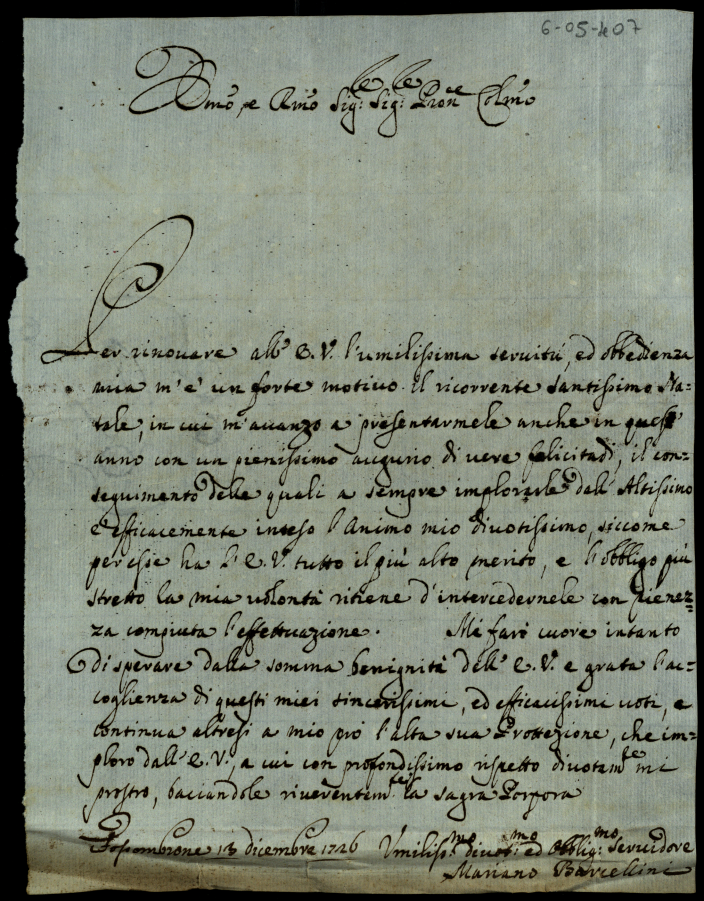 6-05-1e07
Emo, e Rmo Sig:re Sig:re Prone Colmo
Per rinovare all' E. V. l'umilissima servitù, ed obbedienza
mia m'è un forte motivo il ricorrente Santissimo Na=
tale, in cui m'avanzo a presentarmele anche in quest'
anno con un pienissimo augurio di vere felicitadi, il con=
seguimento delle quali a sempre implorarle dall' Altissimo
è efficacemente inteso l'Animo mio divotissimo, siccome
per esse ha l'E. V. tutto il più alto merito, e l'obbligo più
stretto la mia volontà ritiene d'intercedernele con pienez=
za compiuta l'effettuazione. Mi farò cuore intanto
di sperare dalla somma benignità dell' E. V. e grata l'ac=
coglienza di questi miei sincerissimi, ed efficacissimi voti, e
continua altresì a mio prò l'alta sua Protezione, che im=
ploro dall' E. V., a cui con profondissimo rispetto divotamte mi
prostro, baciandole riverentemte la sagra Porpora
Fossombrone 13 dicembre 1726 Umiliss:mo divot:mo ed Obblig:mo Servidore
Mariano Barcellini